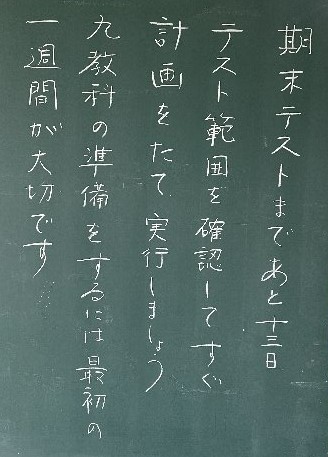 期末テストまであと十三日
テスト範囲を確認してすぐ
計画をたて、実行しましょう
九教科の準備をするには最初の
一週間が大切です